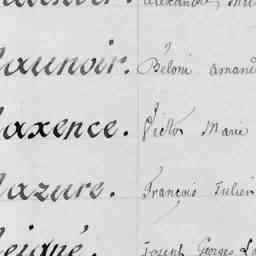 aunoir. Béloni Amand
axence. Victor Marie
azure. François Julien
eigné. Joseph Georges